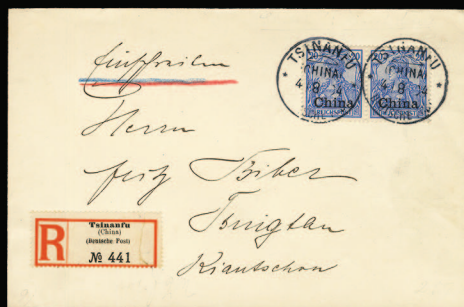 Einschreiben
TSINANFU TSINANFU
CHINA CHINA
China China
Herrn
Fritz Biber
Tsingtau
Kiautschou
R
Tsinanfu
(China)
(Deutsche Post)
№ 441